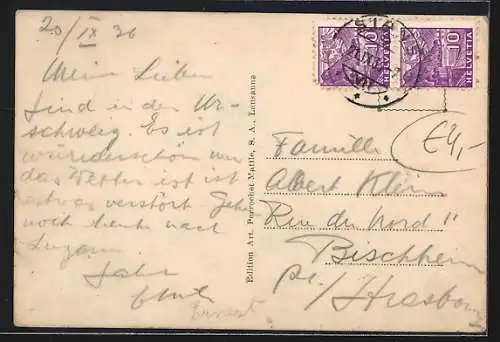 20/IX 36
Meine Lieben
Sind in der Ur-
schweiz. Es ist
wunderschön nur
das Wetter ist
etwas verstört
noch heute nach
Luzern.
Ernest
Edition Art. Perrochet-Matile, S. A., Lausanne
STANS
HELVETIA 10
HELVETIA 10
€4,-
Famille
Albert Klein
Rue du Nord 11
Bischheim
pr./Strasbourg